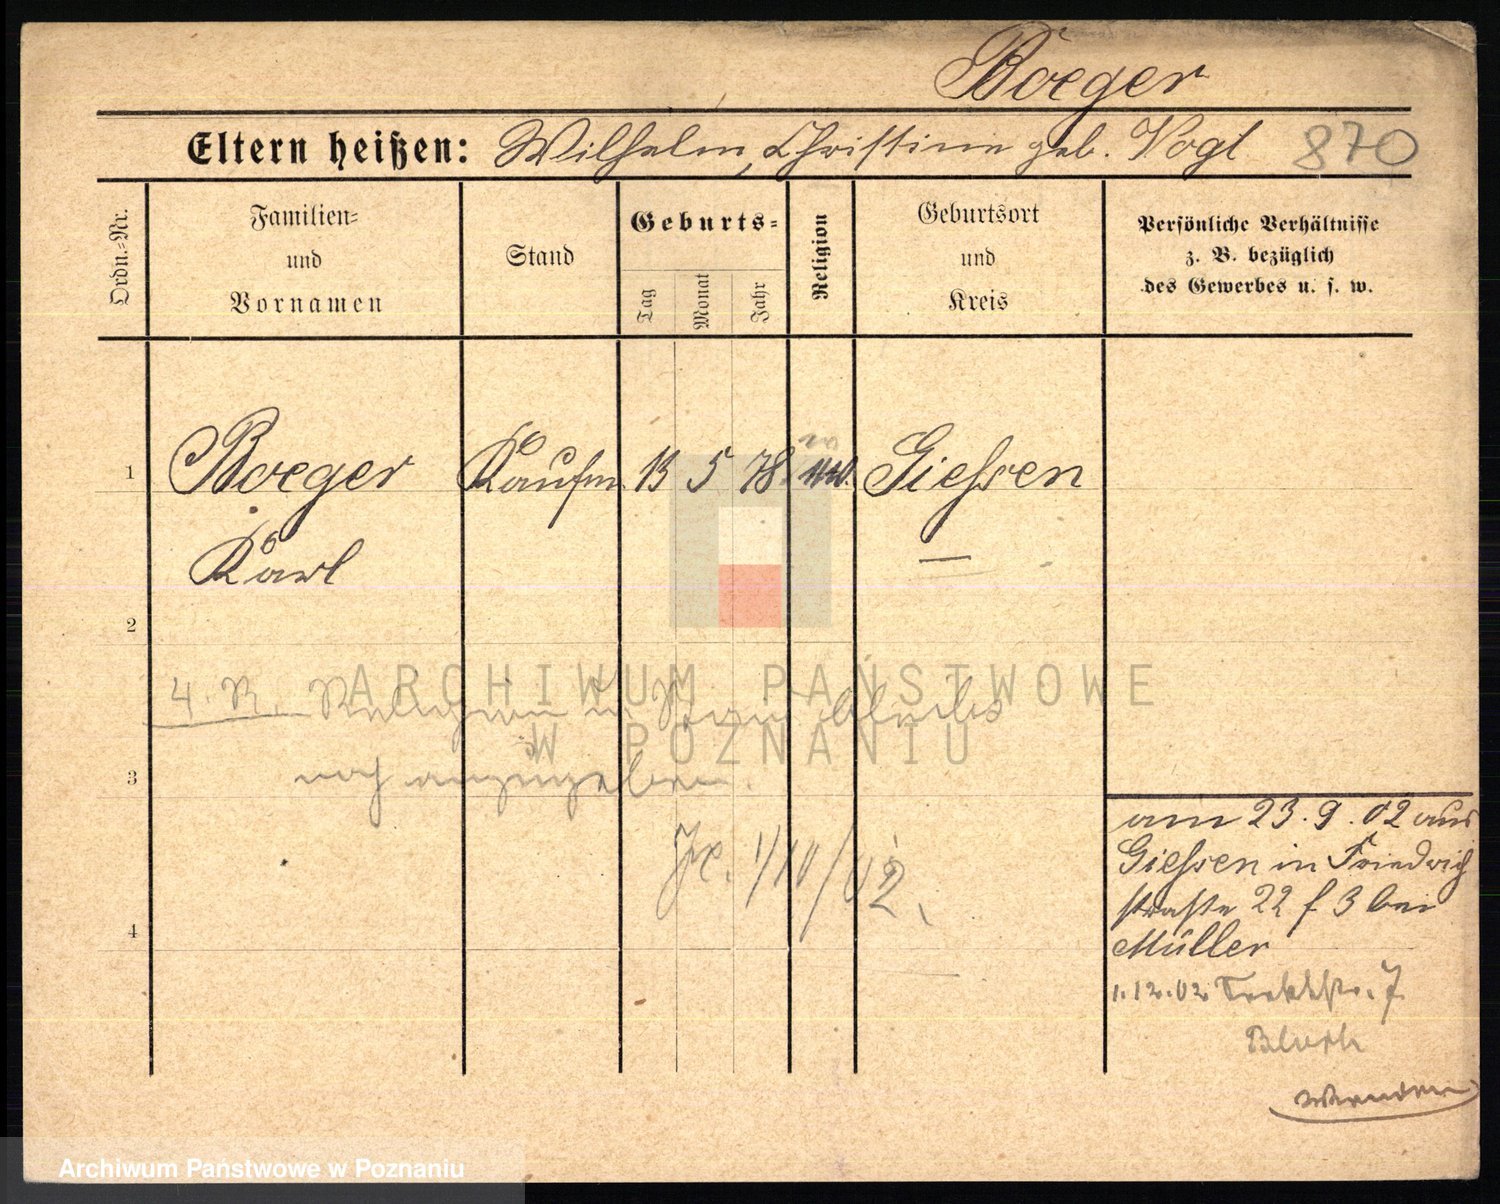 Boeger
Eltern heißen: Wilhelm, Christine geb. Vogt 870
Ordn.-Nr.
Familien-
und
Vornamen
Stand
Geburts-
Tag
Monat
Jahr
Religion
Geburtsort
und
Kreis
Persönliche Verhältnisse
z. B. bezüglich
des Gewerbes u. s. w.
1 Boeger Kaufm. 13 5 78. Giessen
Karl
2
4. R. Religion
3 noch anzugeben.
1/10/02.
4
am 23.9.02 aus
Giessen in Friedrich
straße 22 f 3 bei
Müller
1.12.02 7
Wenden
ARCHIWUM PAŃSTWOWE
W POZNANIU
Archiwum Państwowe w Poznaniu